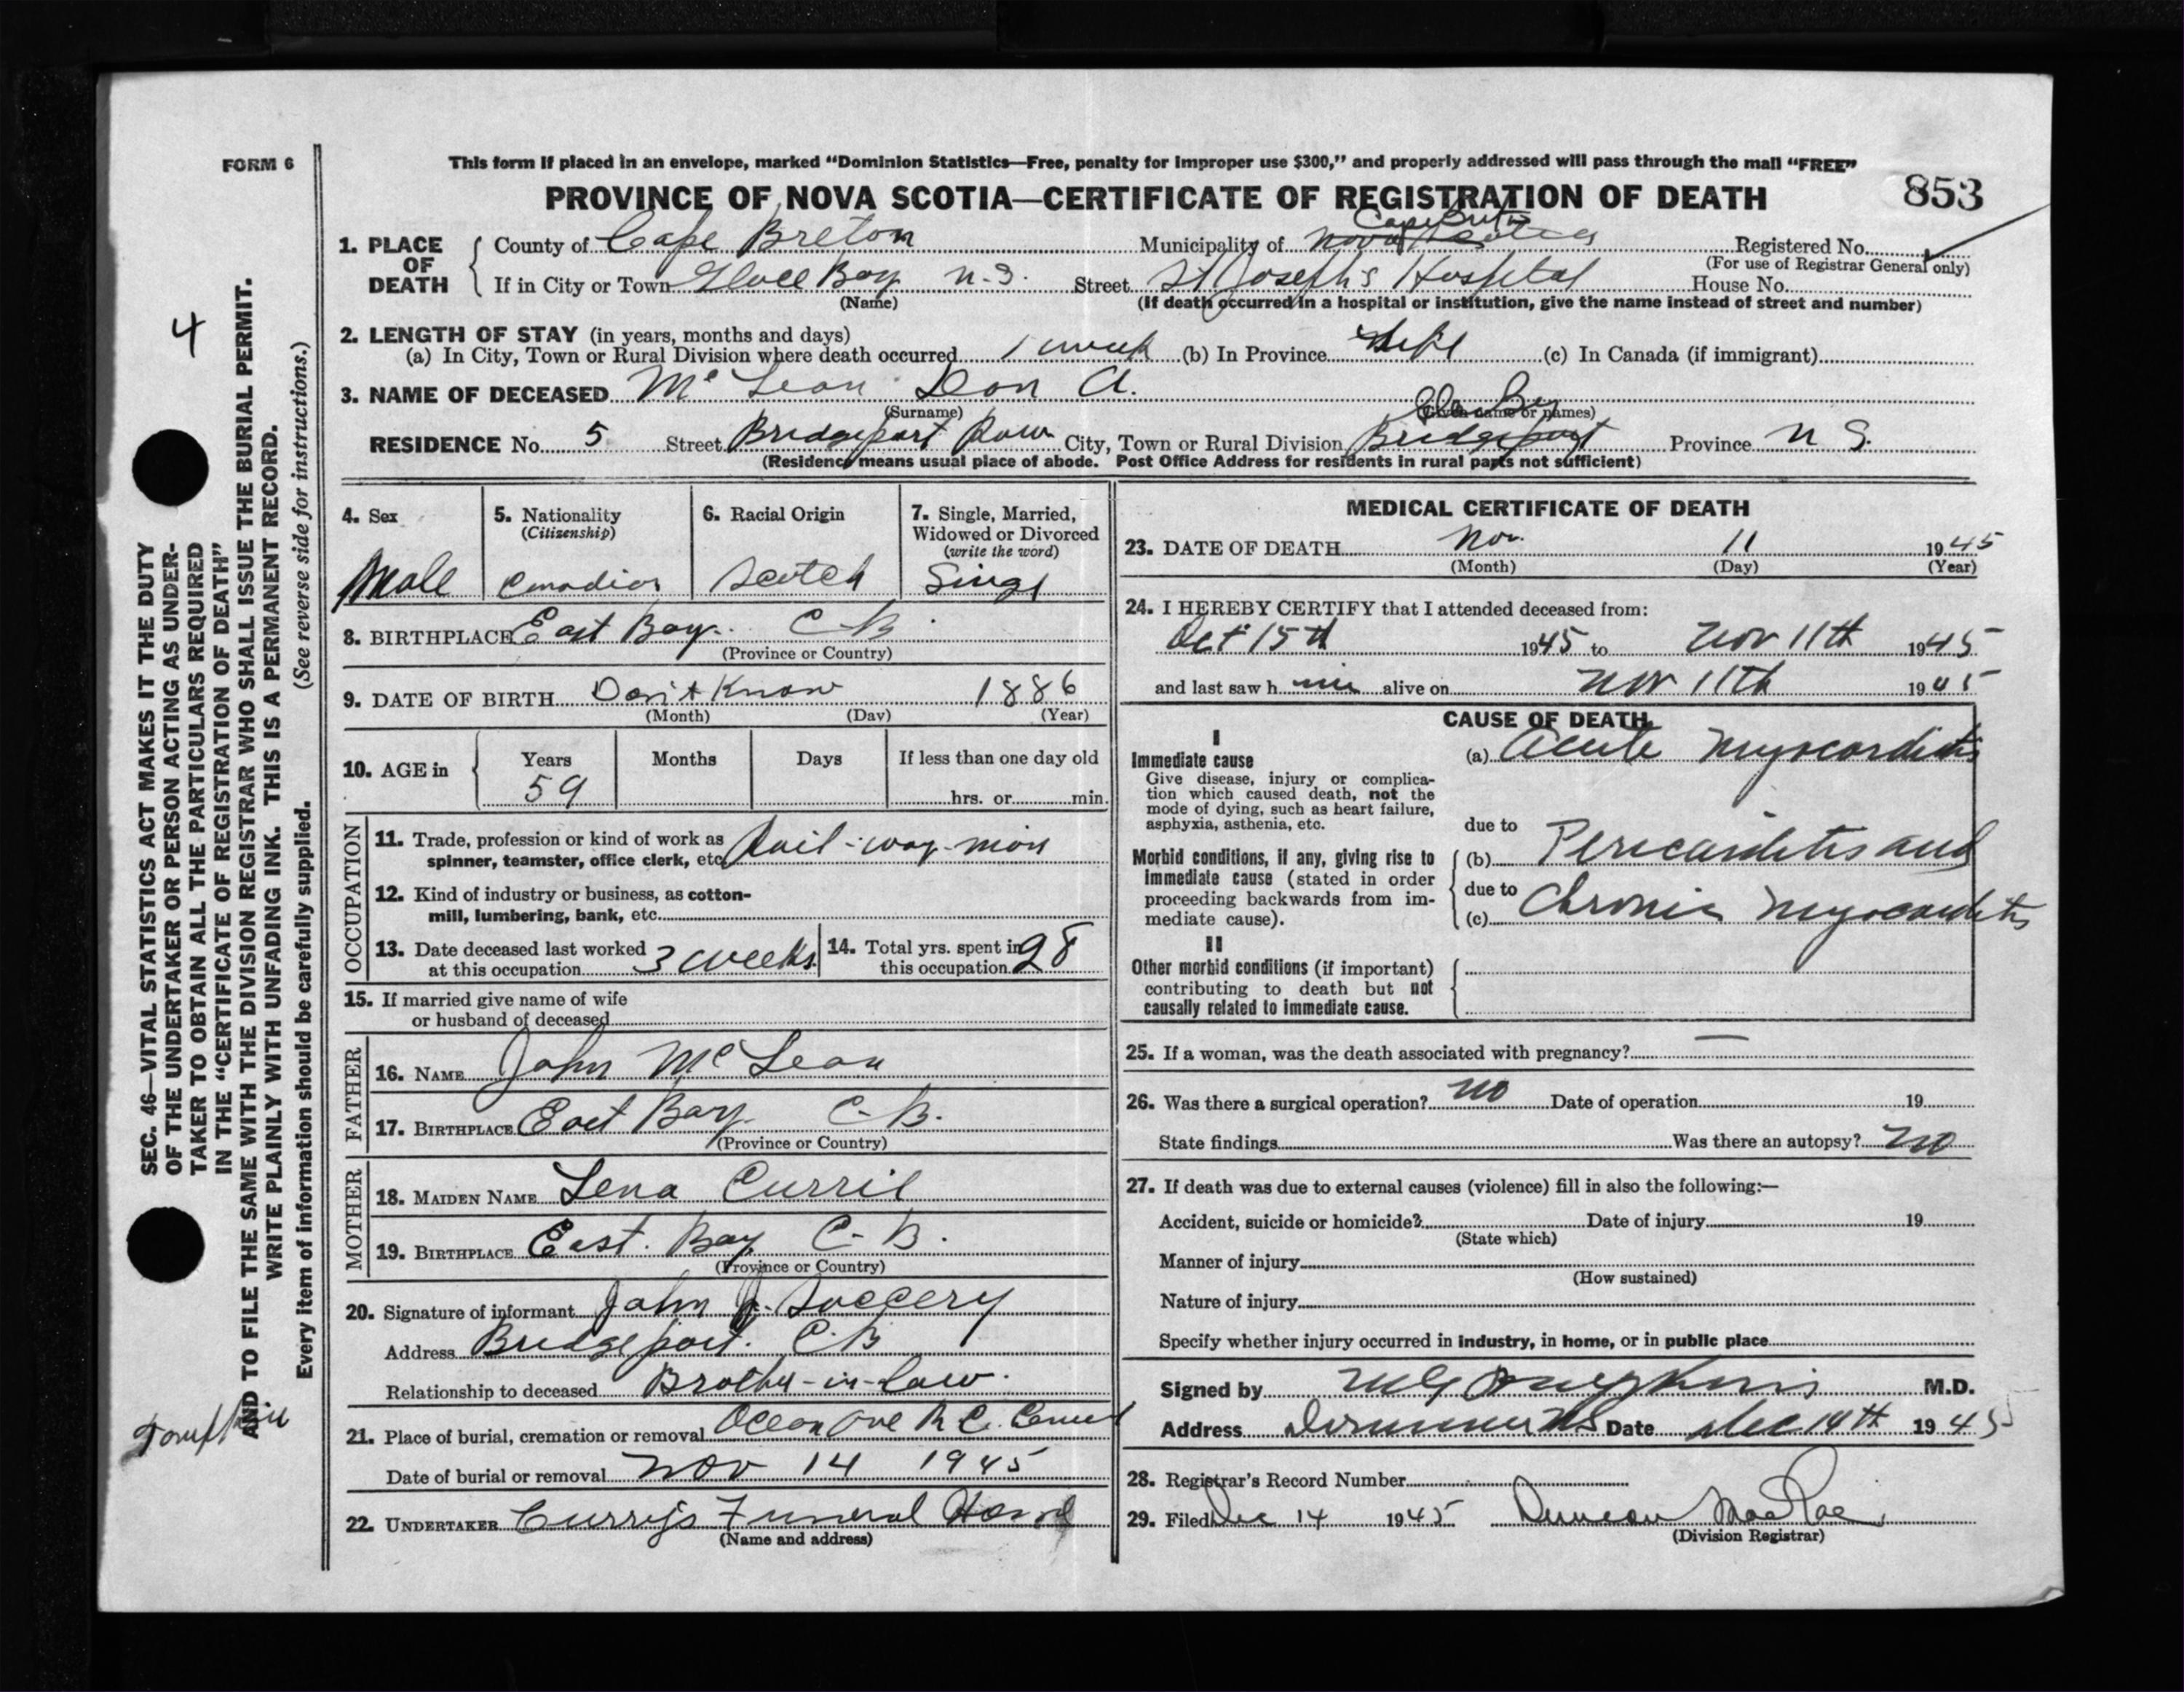 FORM 6
This form if placed in an envelope, marked "Dominion Statistics—Free, penalty for improper use $300," and properly addressed will pass through the mail "FREE"
PROVINCE OF NOVA SCOTIA—CERTIFICATE OF REGISTRATION OF DEATH
853
1. PLACE OF DEATH
County of Cape Breton Municipality of Nova Scotia Cape Breton Registered No.
(For use of Registrar General only)
If in City or Town Glace Bay N.S. Street St Joseph's Hospital House No.
(Name) (If death occurred in a hospital or institution, give the name instead of street and number)
2. LENGTH OF STAY (in years, months and days)
(a) In City, Town or Rural Division where death occurred 1 week (b) In Province Life (c) In Canada (if immigrant)
3. NAME OF DECEASED McLean Dan A.
(Surname) (Given name or names)
RESIDENCE No. 5 Street Bridgeport Row City, Town or Rural Division Bridgeport Province N S.
(Residence means usual place of abode. Post Office Address for residents in rural parts not sufficient)
4. Sex
Male
5. Nationality
(Citizenship)
Canadian
6. Racial Origin
Scotch
7. Single, Married,
Widowed or Divorced
(write the word)
Singl
8. BIRTHPLACE East Bay. C B.
(Province or Country)
9. DATE OF BIRTH Don't Know 1886
(Month) (Day) (Year)
10. AGE in
Years Months Days If less than one day old
59
hrs. or min.
OCCUPATION
11. Trade, profession or kind of work as
spinner, teamster, office clerk, etc. Rail-way-man
12. Kind of industry or business, as cotton-
mill, lumbering, bank, etc.
13. Date deceased last worked
at this occupation 3 weeks
14. Total yrs. spent in
this occupation 28
15. If married give name of wife
or husband of deceased
FATHER
16. NAME John McLean
17. BIRTHPLACE East Bay C-B.
(Province or Country)
MOTHER
18. MAIDEN NAME Lena Currie
19. BIRTHPLACE East. Bay C-B.
(Province or Country)
20. Signature of informant John J.
Address Bridgeport. C.B
Relationship to deceased Brother-in-law.
21. Place of burial, cremation or removal R.C.
Date of burial or removal Nov 14 1945
22. UNDERTAKER Curry's Funeral Home
(Name and address)
MEDICAL CERTIFICATE OF DEATH
23. DATE OF DEATH Nov. 11 1945
(Month) (Day) (Year)
24. I HEREBY CERTIFY that I attended deceased from:
Oct 15th 1945 to Nov 11th 1945
and last saw h im alive on Nov 11th 1945
CAUSE OF DEATH
I
Immediate cause
Give disease, injury or complica-
tion which caused death, not the
mode of dying, such as heart failure,
asphyxia, asthenia, etc.
(a) Acute Myocarditis
due to
Morbid conditions, if any, giving rise to
immediate cause (stated in order
proceeding backwards from im-
mediate cause).
(b) Pericarditis and
due to
(c) Chronic Myocarditis
II
Other morbid conditions (if important)
contributing to death but not
causally related to immediate cause.
25. If a woman, was the death associated with pregnancy? —
26. Was there a surgical operation? No Date of operation 19
State findings Was there an autopsy? No
27. If death was due to external causes (violence) fill in also the following:—
Accident, suicide or homicide? Date of injury 19
(State which)
Manner of injury
(How sustained)
Nature of injury
Specify whether injury occurred in industry, in home, or in public place
Signed by M.D.
Address Date Dec 14th 1945
28. Registrar's Record Number
29. Filed Dec 14 1945 Duncan MacRae
(Division Registrar)
4
SEC. 46—VITAL STATISTICS ACT MAKES IT THE DUTY
OF THE UNDERTAKER OR PERSON ACTING AS UNDER-
TAKER TO OBTAIN ALL THE PARTICULARS REQUIRED
IN THE "CERTIFICATE OF REGISTRATION OF DEATH"
AND TO FILE THE SAME WITH THE DIVISION REGISTRAR WHO SHALL ISSUE THE BURIAL PERMIT.
WRITE PLAINLY WITH UNFADING INK. THIS IS A PERMANENT RECORD.
Every item of information should be carefully supplied. (See reverse side for instructions.)